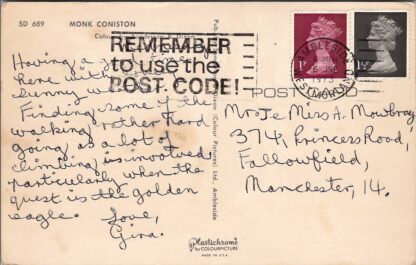 SD 689 MONK CONISTON
REMEMBER
to use the
POST CODE!
AMBLESIDE
WESTMORLAND
1973
1P
½P
POST
D
Having a
here with
sunny w
Finding some of the
walking rather hard
going as a lot of
climbing is involved
particularly when the
quest is the golden
eagle. Love,
Gina.
(Colour Pictures) Ltd. Ambleside
Mr Je Miss A. Mowbray
374, Princess Road,
Fallowfield,
Manchester, 14.
Plastichrome
by COLOURPICTURE
MADE IN U.S.A.